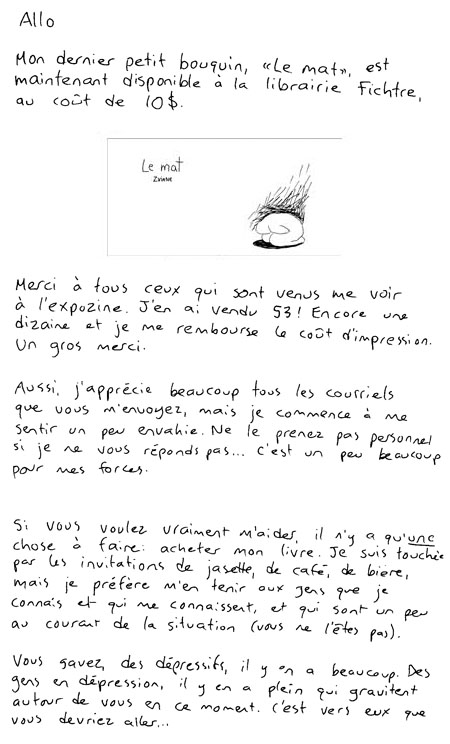 Allo
Mon dernier petit bouquin, «Le mat», est
maintenant disponible à la librairie Fichtre,
au coût de 10$.
Le mat
Zviane
Merci à tous ceux qui sont venus me voir
à l'expozine. J'en ai vendu 53! Encore une
dizaine et je me rembourse le coût d'impression.
Un gros merci.
Aussi, j'apprécie beaucoup tous les courriels
que vous m'envoyez, mais je commence à me
sentir un peu envahie. Ne le prenez pas personnel
si je ne vous réponds pas... C'est un peu beaucoup
pour mes forces.
Si vous voulez vraiment m'aider, il n'y a qu'une
chose à faire: acheter mon livre. Je suis touchée
par les invitations de jasette, de café, de bière,
mais je préfère m'en tenir aux gens que je
connais et qui me connaissent, et qui sont un peu
au courant de la situation (vous ne l'êtes pas).
Vous savez, des dépressifs, il y en a beaucoup. Des
gens en dépression, il y en a plein qui gravitent
autour de vous en ce moment. C'est vers eux que
vous devriez aller...